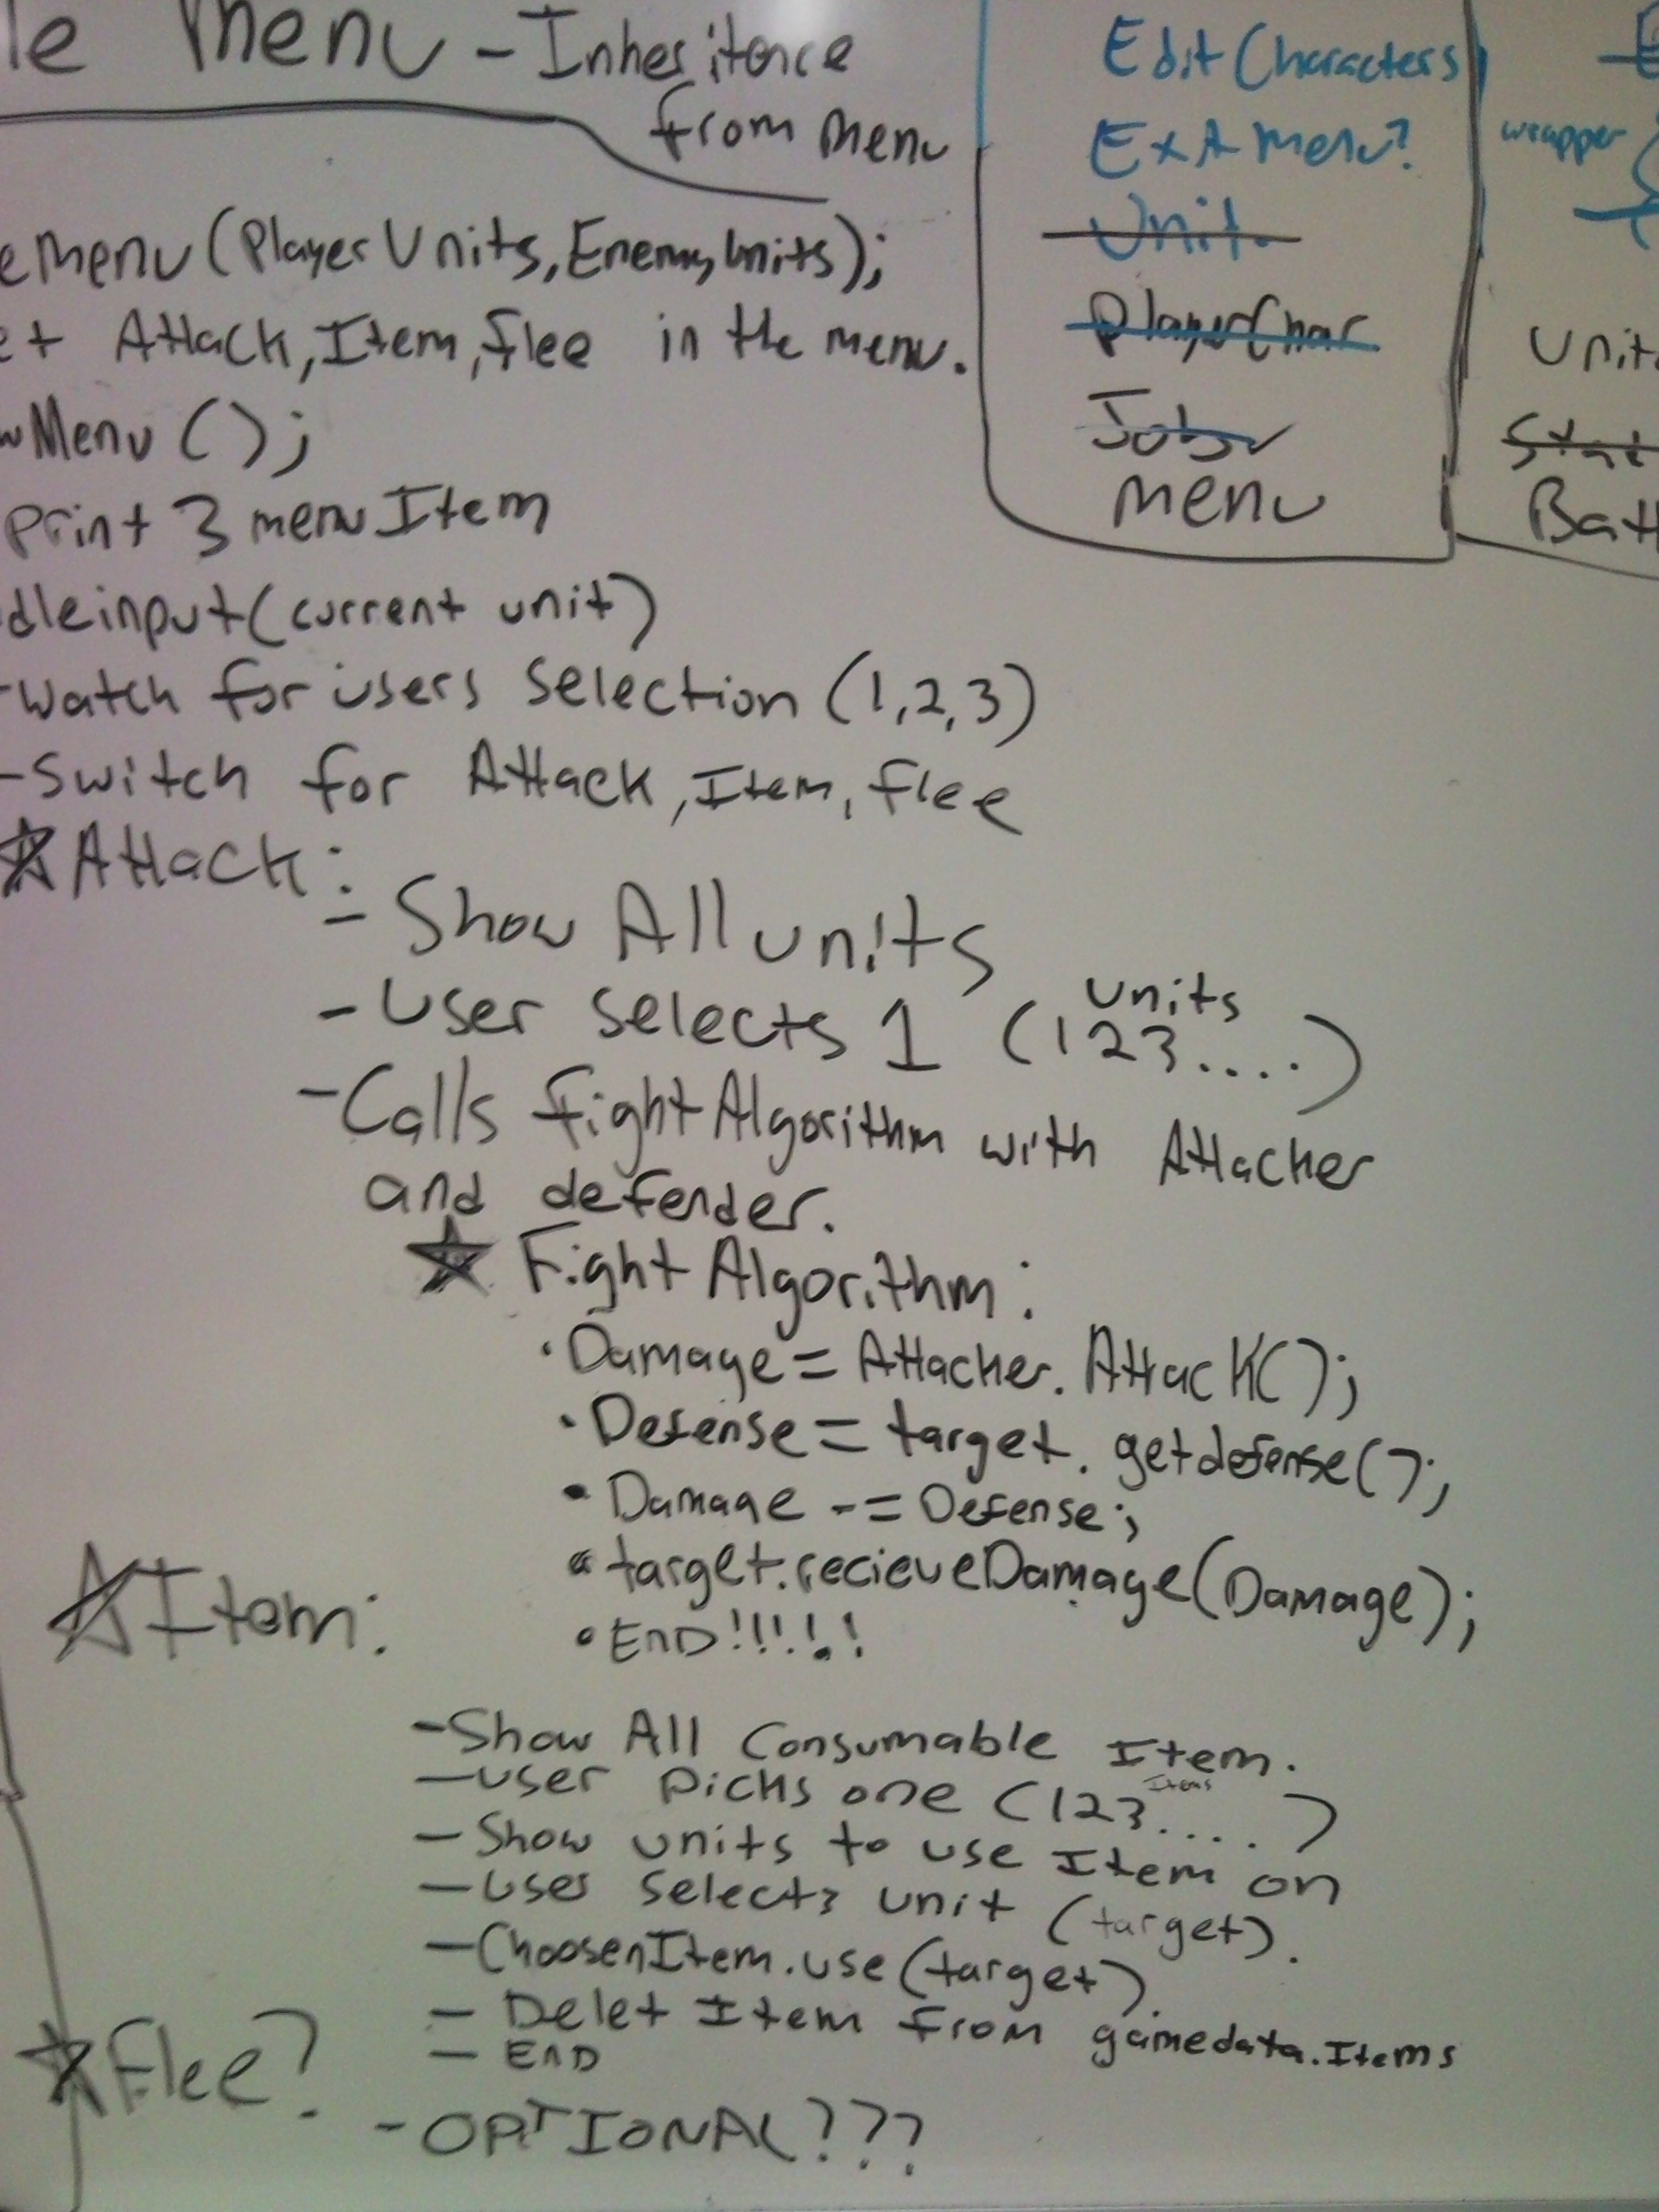 le Menu - Inheritence
from Menu
emenu (Player Units, Enemy Units);
et Attack, Item, flee in the menu.
wMenu ();
Print 3 menu Item
dleinput (current unit)
-Watch for users Selection (1,2,3)
-Switch for Attack, Item, flee
Attack:
- Show All units
- User Selects 1 (123....)
units
- Calls fight Algorithm with Attacker
and defender.
Fight Algorithm:
• Damage = Attacker. Attack();
• Defense = target. getdefense();
• Damage -= Defense;
• target.recieveDamage(Damage);
• END!!!!!
Item:
- Show All Consumable Item.
- user picks one (123....)
Items
- Show units to use Item on
- User Selects unit (target).
- ChoosenItem.use(target).
- Delet Item from gamedata.Items
- END
Flee?
- OPTIONAL???
Edit Characters
Exit Menu?
Unit
PlayerChar
Jobs
Menu
wrapper
Unit
Stat
Batt